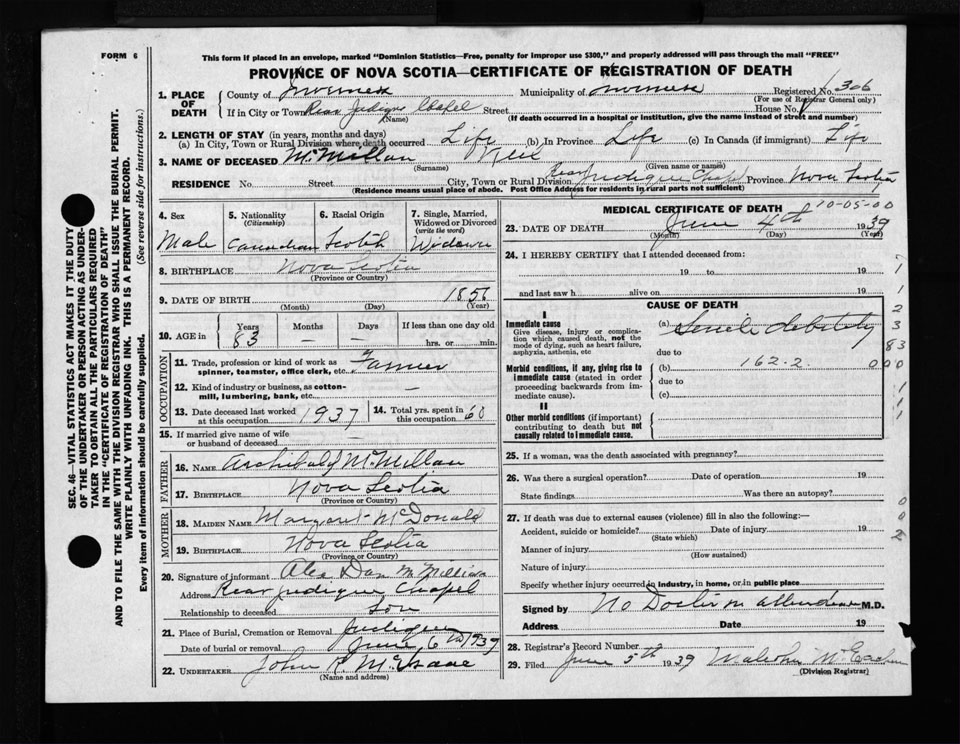 FORM 6
This form if placed in an envelope, marked "Dominion Statistics—Free, penalty for improper use $300," and properly addressed will pass through the mail "FREE"
PROVINCE OF NOVA SCOTIA—CERTIFICATE OF REGISTRATION OF DEATH
1. PLACE OF DEATH
County of Inverness Municipality of Inverness Registered No. 306
(For use of Registrar General only)
If in City or Town Rear Judique Chapel Street House No.
(Name) (If death occurred in a hospital or institution, give the name instead of street and number)
2. LENGTH OF STAY (in years, months and days)
(a) In City, Town or Rural Division where death occurred Life (b) In Province Life (c) In Canada (if immigrant) Life
3. NAME OF DECEASED McMillan
(Surname) (Given name or names)
RESIDENCE No. Street City, Town or Rural Division Rear Judique Chapel Province Nova Scotia
(Residence means usual place of abode. Post Office Address for residents in rural parts not sufficient)
4. Sex
Male
5. Nationality (Citizenship)
Canadian
6. Racial Origin
Scotch
7. Single, Married, Widowed or Divorced (write the word)
8. BIRTHPLACE Nova Scotia
(Province or Country)
9. DATE OF BIRTH 1856
(Month) (Day) (Year)
10. AGE in
Years Months Days If less than one day old
83 — — hrs. or min.
OCCUPATION
11. Trade, profession or kind of work as spinner, teamster, office clerk, etc. Farmer
12. Kind of industry or business, as cotton-mill, lumbering, bank, etc. —
13. Date deceased last worked at this occupation 1937
14. Total yrs. spent in this occupation 60
15. If married give name of wife or husband of deceased —
FATHER
16. NAME Archibald McMillan
17. BIRTHPLACE Nova Scotia
(Province or Country)
MOTHER
18. MAIDEN NAME Margaret McDonald
19. BIRTHPLACE Nova Scotia
(Province or Country)
20. Signature of informant Alex Dan McMillan
Address Rear Judique Chapel
Relationship to deceased Son
21. Place of Burial, Cremation or Removal Judique
Date of burial or removal June 6th 1939
22. UNDERTAKER John R. McIsaac
(Name and address)
MEDICAL CERTIFICATE OF DEATH
10-05-00
23. DATE OF DEATH June 4th 1939
(Month) (Day) (Year)
24. I HEREBY CERTIFY that I attended deceased from:
19 to 19
and last saw h alive on 19
CAUSE OF DEATH
I
Immediate cause
Give disease, injury or complication which caused death, not the mode of dying, such as heart failure, asphyxia, asthenia, etc
(a) Senile debility
due to
Morbid conditions, if any, giving rise to immediate cause (stated in order proceeding backwards from immediate cause).
(b) 162.2
due to
(c)
II
Other morbid conditions (if important) contributing to death but not causally related to immediate cause.
1
1
2
3
83
000
1
1
1
25. If a woman, was the death associated with pregnancy?
26. Was there a surgical operation? Date of operation 19
State findings Was there an autopsy?
27. If death was due to external causes (violence) fill in also the following:—
Accident, suicide or homicide? Date of injury 19
(State which)
Manner of injury
(How sustained)
Nature of injury
Specify whether injury occurred in industry, in home, or in public place
0
0
2
Signed by No Doctor in attendance M.D.
Address Date 19
28. Registrar's Record Number
29. Filed June 5th 1939 Malcolm McEachern
(Division Registrar)
SEC. 46—VITAL STATISTICS ACT MAKES IT THE DUTY OF THE UNDERTAKER OR PERSON ACTING AS UNDERTAKER TO OBTAIN ALL THE PARTICULARS REQUIRED IN THE "CERTIFICATE OF REGISTRATION OF DEATH"
AND TO FILE THE SAME WITH THE DIVISION REGISTRAR WHO SHALL ISSUE THE BURIAL PERMIT.
WRITE PLAINLY WITH UNFADING INK. THIS IS A PERMANENT RECORD.
Every item of information should be carefully supplied. (See reverse side for instructions.)